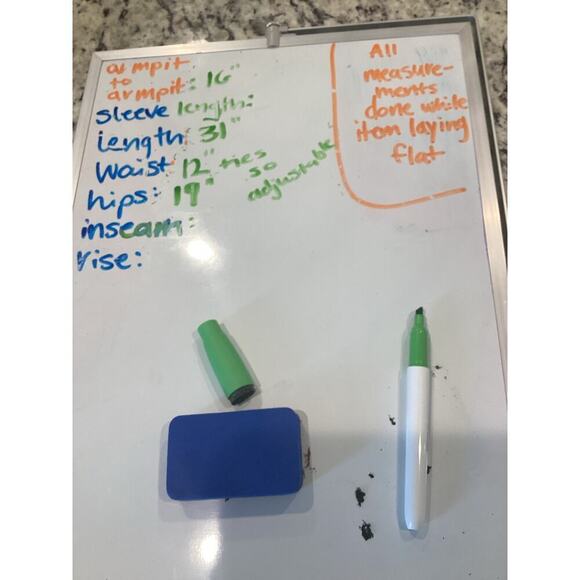 armpit
to
armpit: 16"
sleeve length:
length: 31"
Waist 12" ties
so
adjustable
hips: 19"
inseam:
rise:
All
measure-
ments
done while
item laying
flat